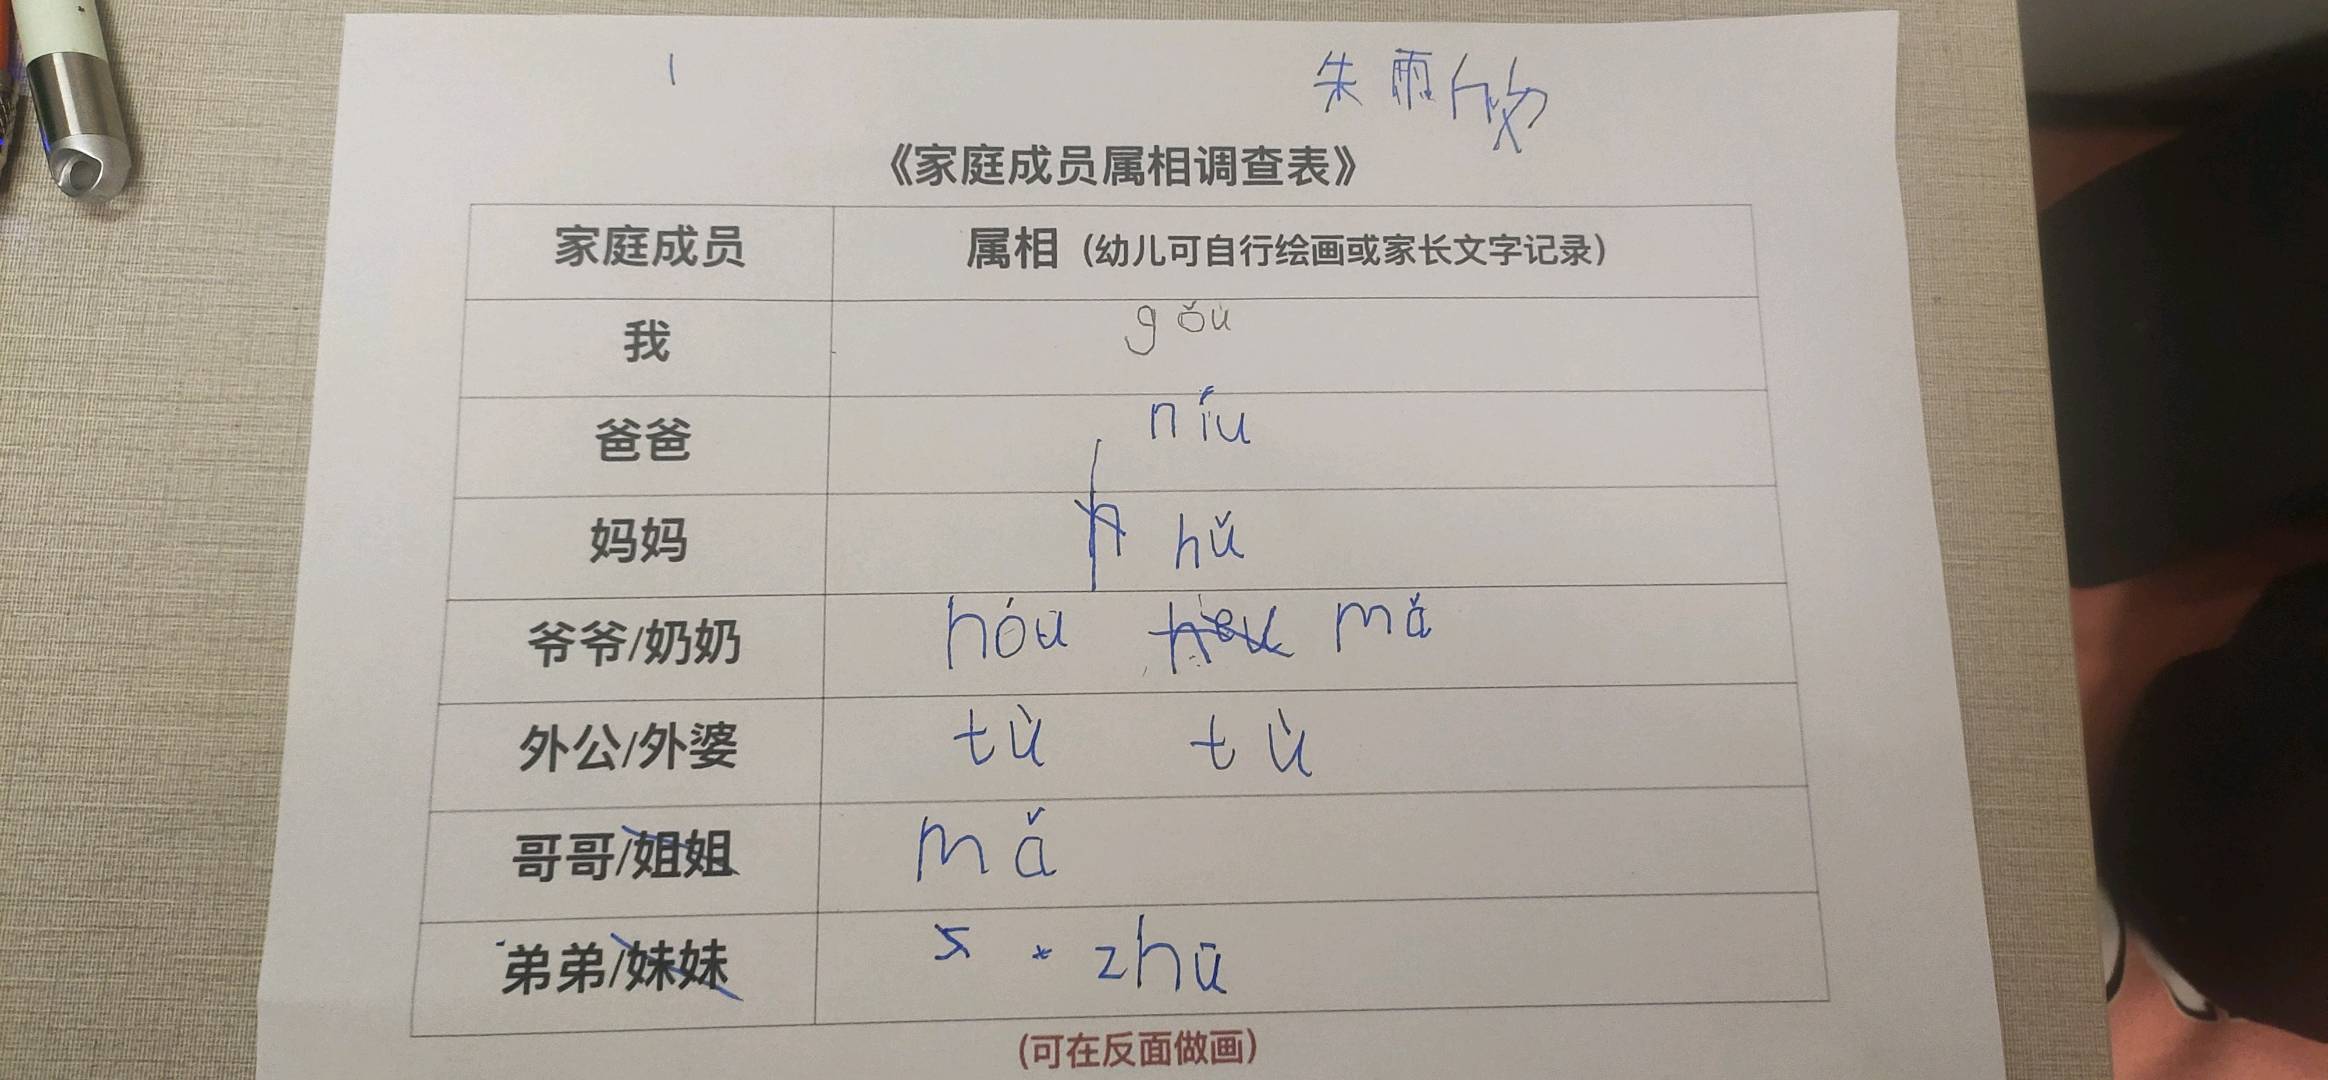 朱雨
《家庭成员属相调查表》
家庭成员 属相（幼儿可自行绘画或家长文字记录）
我 gǒu
爸爸 níu
妈妈 hǔ
爷爷/奶奶 hóu mǎ
外公/外婆 tù tù
哥哥/姐姐 mǎ
弟弟/妹妹 zhū
(可在反面做画)